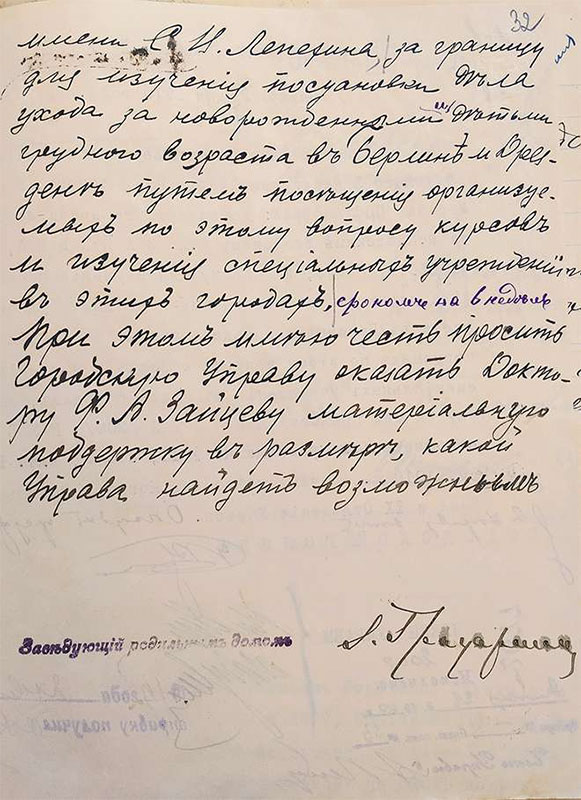 32
имени С. И. Лепехина, за границу
для изученія постановки дѣла
ухода за новорожденными и дѣтьми
грудного возраста въ Берлинѣ и Дрез-
денѣ путемъ посѣщенія организуе-
мыхъ по этому вопросу курсовъ
и изученія спеціальныхъ учрежденій
въ этихъ городахъ, срокомъ на 8 недѣль
При этомъ имѣю честь просить
Городскую Управу оказать Докто-
ру Ф. А. Зайцеву матеріальную
поддержку въ размѣрѣ, какой
Управа найдетъ возможнымъ
Завѣдующій родильнымъ домомъ